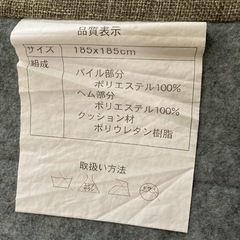 品質表示
サイズ 185x185cm
組成
パイル部分
ポリエステル100%
ヘム部分
ポリエステル100%
クッション材
ポリウレタン樹脂
取扱い方法